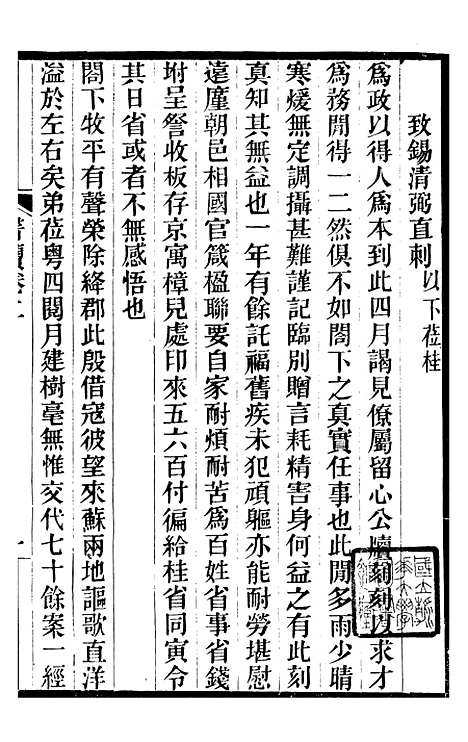 致錫清弼直刺以下莅桂
爲政以得人爲本到此四月謁見僚屬留心公牘刻刻以求才
爲務閒得一二然俱不如閣下之真實任事也此閒多雨少晴
寒煖無定調攝甚難謹記臨別贈言耗精害身何益之有此刻
真知其無益也一年有餘託福舊疾未犯頑軀亦能耐勞堪慰
遠廑朝邑相國官箴楹聯要自家耐煩耐苦爲百姓省事省錢
坿呈詧收板存京寓樟兒處印來五六百付徧給桂省同寅令
其日省或者不無感悟也
閣下牧平有聲榮除絳郡此殷借寇彼望來蘇兩地謳歌直洋
溢於左右矣弟莅粤四閱月建樹毫無惟交代七十餘案一經
書牘卷二
一